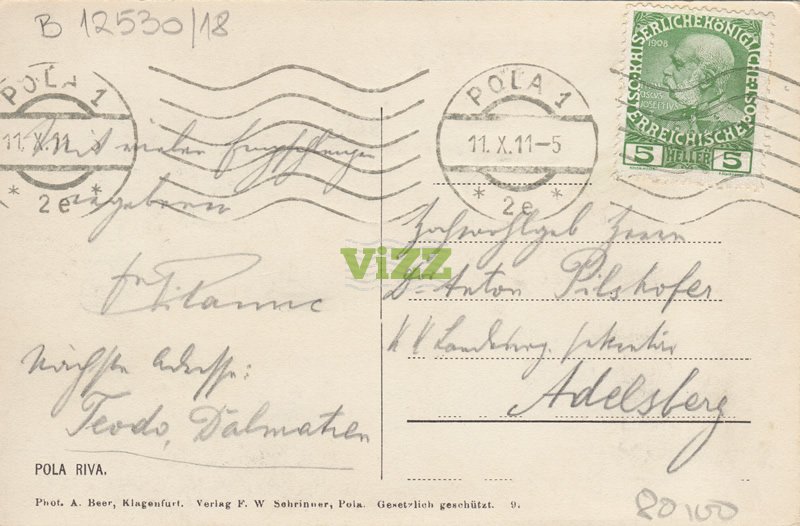 B 12530/18
POLA 1
11.X.11
* 2e *
POLA 1
11.X.11-5
* 2e *
KAISERLICHE KÖNIGLICHE
ÖSTERREICHISCHE
1908
5 HELLER 5
Mit vielen Empfehlungen
ergebener
Nächste Adresse:
Teodo, Dalmatien
Hochwohlgeb Herrn
Dr Anton Pilshofer
KK Landesreg. sekretär
Adelsberg
ViZZ
POLA RIVA.
Phot. A. Beer, Klagenfurt. Verlag F. W Schrinner, Pola. Gesetzlich geschützt. 9.
80,00